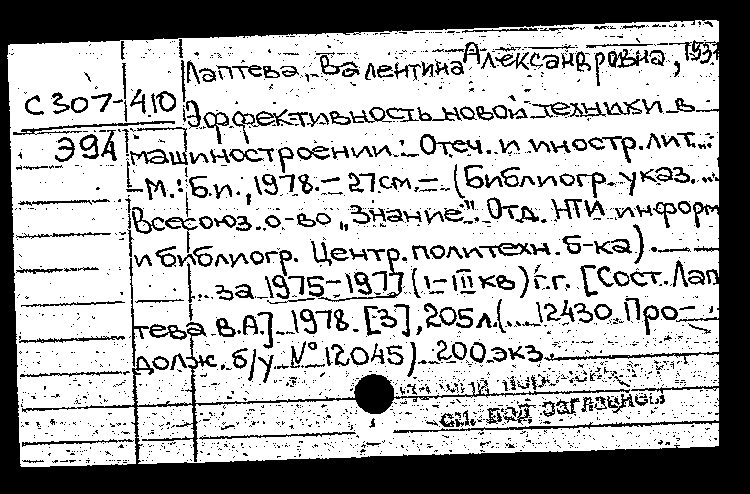 Лаптева, Валентина Александровна, 1937
С307-410
Эффективность новой техники в
Э94
машиностроении: Отеч. и иностр. лит..:
-М.: Б.и., 1978.- 27см.- (Библиогр. указ. ..
Всесоюз. о-во „Знание". Отд. НТИ информ
и библиогр. Центр. политехн. б-ка).
... за 1975-1977 (I-III кв) г.г. [Сост. Лап
тева В.А.] 1978. [3], 205л. (... 12430 Про-
долж. б/у № 12045) 200экз.
см. под заглавием